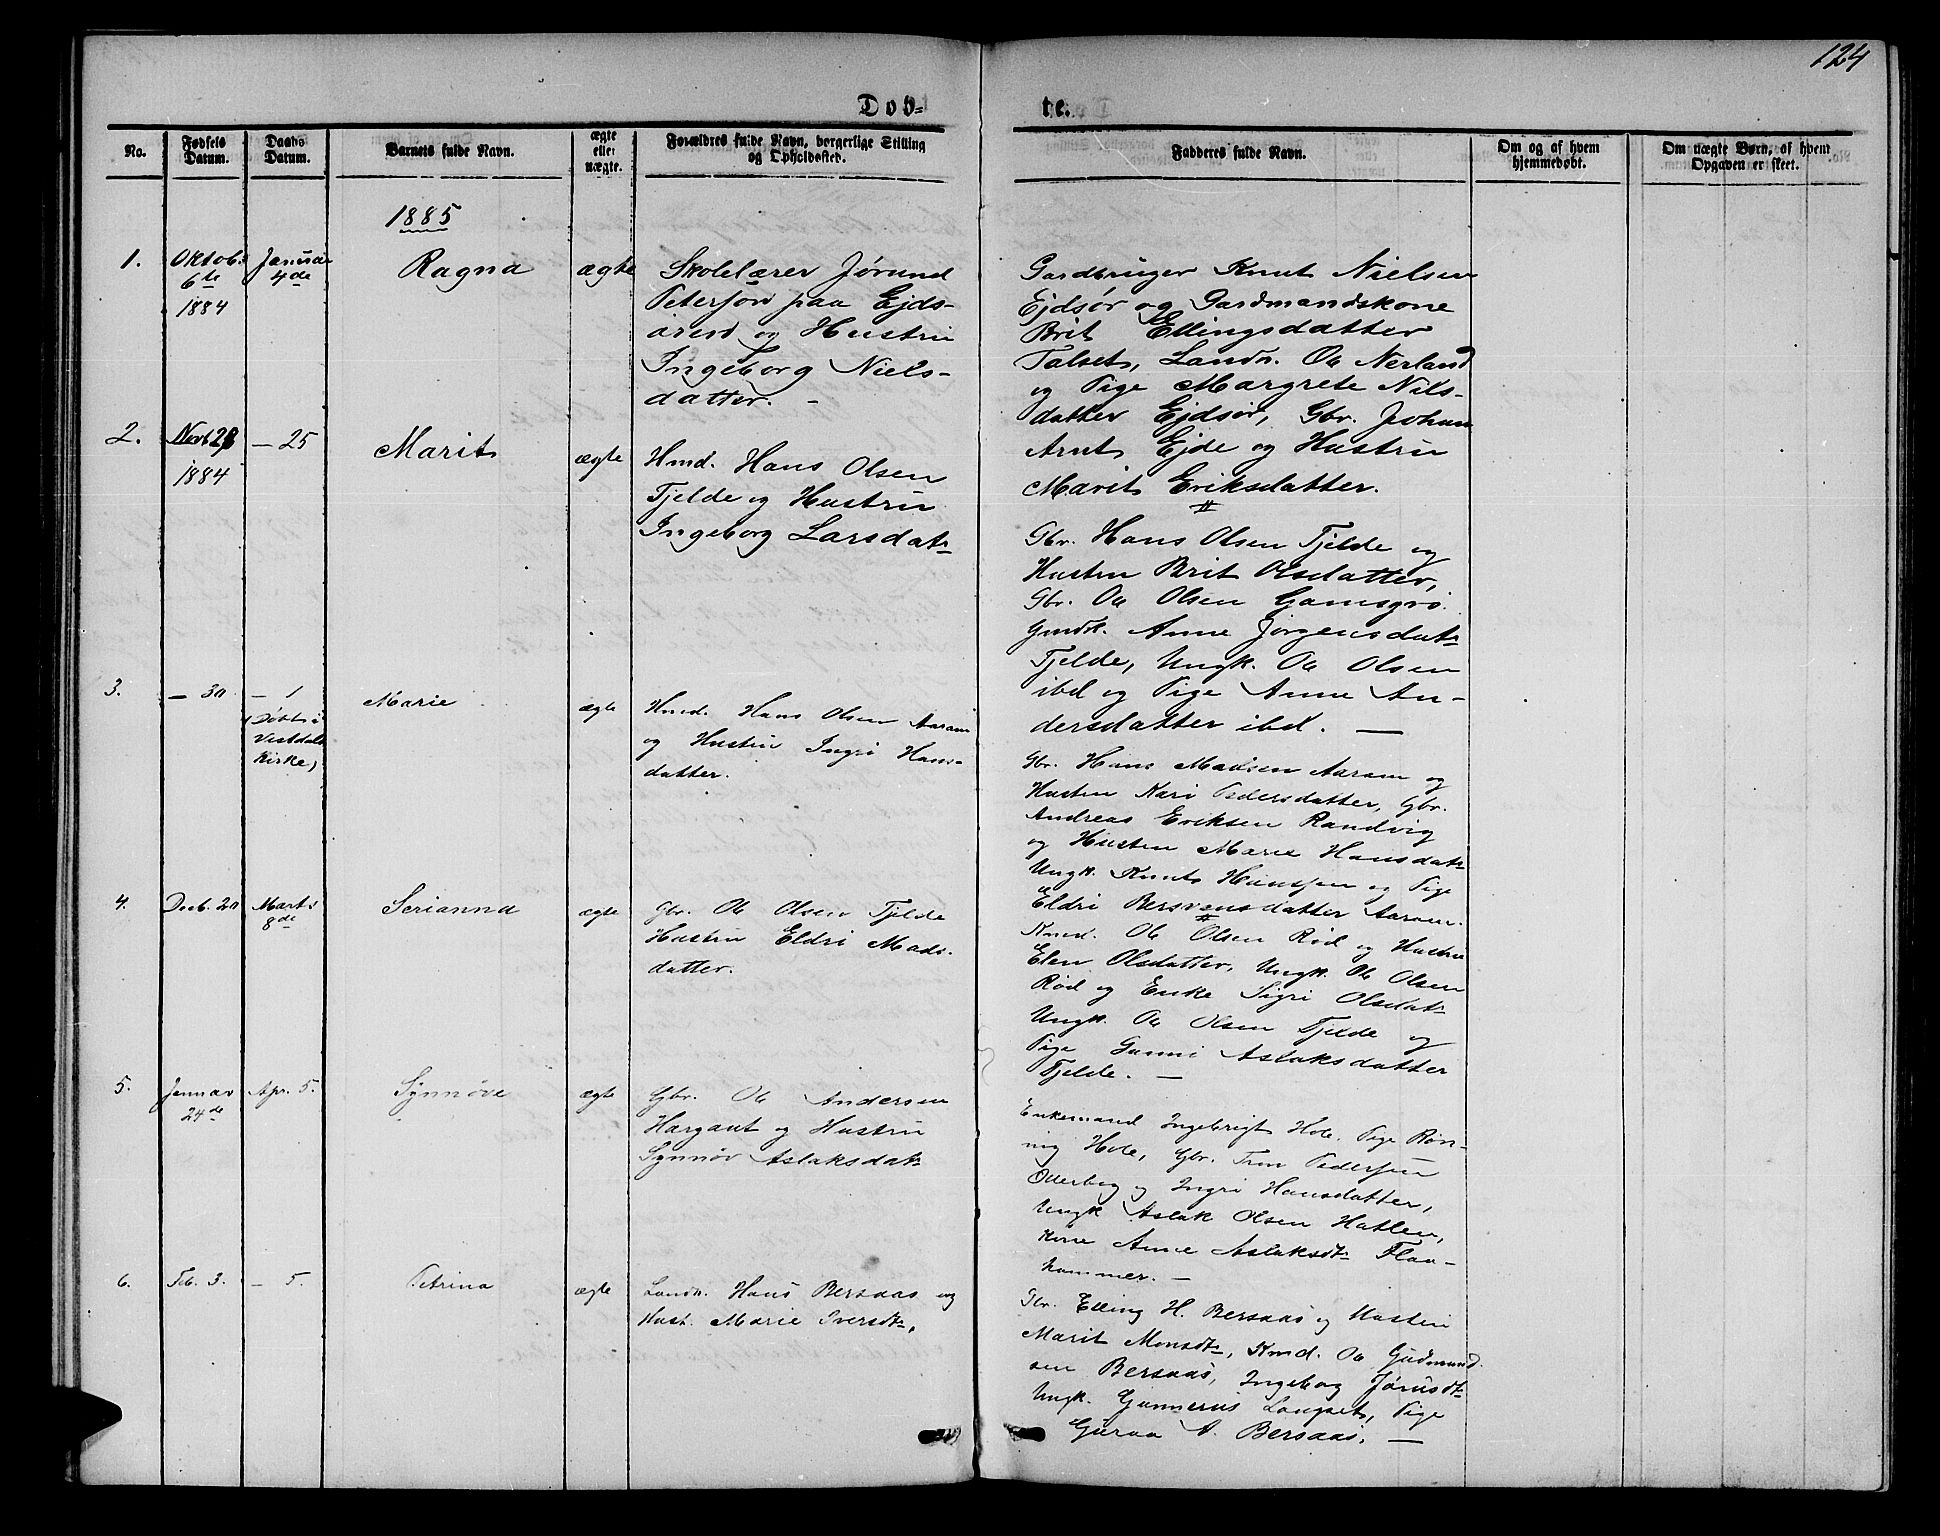 124
Døb-
te.
No.
Fødsels Datum.
Daabs Datum.
Barnets fulde Navn.
ægte eller uægte.
Forældres fulde Navn, borgerlige Stilling
og Opholdssted.
Fadderes fulde Navn.
Om og af hvem
hjemmedøbt.
Om uægte Børn, af hvem
Opgaven er skeet.
1885
1.
Oktob.
6te
1884
Januar
4de
Ragna
ægte
Skolelærer Jørund
Petersøn paa Ejds-
øren og Hustru
Ingeborg Niels-
datter. -
Gardbruger Knut Nielsen
Ejdsør og Gardmandskone
Brit Ellingsdatter
Talset, Landh. Ole Nerland
og Pige Margrete Nils-
datter Ejdsør, Gbr. Johan
Arnt Ejde og Hustru
Marit Eriksdatter.
2.
1884
- 25
Marit
ægte
Hmd. Hans Olsen
Tjelde og Hustru
Ingeborg Larsdat-
Gbr. Hans Olsen Tjelde og
Hustru Brit Olsdatter,
Gbr. Ole Olsen
Gmdk. Anne Jørgensdat-
Tjelde, Ungk. Ole Olsen
ibd og Pige Anne An-
dersdatter ibd. -
3.
- 30
- 1
(Døbt i
Vestdals
Kirke)
Marie
ægte
Hmd. Hans Olsen Aaram
og Hustru Ingri Hans-
datter.
Gbr. Hans Madsen Aaram og
Hustru Kari Pedersdatter, Gbr.
Andreas Eriksen Randvig
og Hustru Marie Hansdat-
Ungk. Knut Hansen og Pige
Eldri Bersvensdatter Aaram.
4.
Decb. 20
Marts
8de
Serianna
ægte
Gbr. Ole Olsen Tjelde
Hustru Eldri Mads-
datter.
Kmd. Ole Olsen Rød og Hustru
Elen Olsdatter, Ungk. Ole Olsen
Rød og Enke Sigri Olsdat-
Ungk. Ole Olsen Tjelde og
Pige Gunni Aslaksdatter
Tjelde. -
5.
Januar
24de
Apr. 5.
Synnøve
ægte
Gbr. Ole Andersen
Hargaut og Hustru
Synnøv Aslaksdat-
Enkemand Ingebrigt Hole, Pige Røn-
nug Hole, Gbr. Tron Pedersen
Otterbeg og Ingri Hansdatter,
Ungk Aslak Olsen Hatlen,
Kone Anne Aslaksdt- Flaa-
hammer. -
6.
Feb. 3.
- 5.
Petrina
ægte
Landh. Hans Bersaas og
Hust. Marie Iversdt-,
Gbr. Elling H. Bersaas og Hustru
Marit Monsdt-, Kmd. Ole Gudmund-
sen Bersaas, Ingebog Jørusdt-
Ungk. Gunnerus Langset, Pige
Guroa A. Bersaas. -